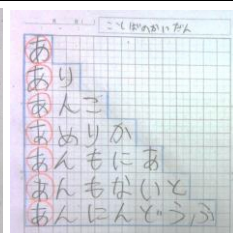 ことばのかいだん
あ
あり
あんこ
あめりか
あんもにあ
あんもないと
あんにんどうふ